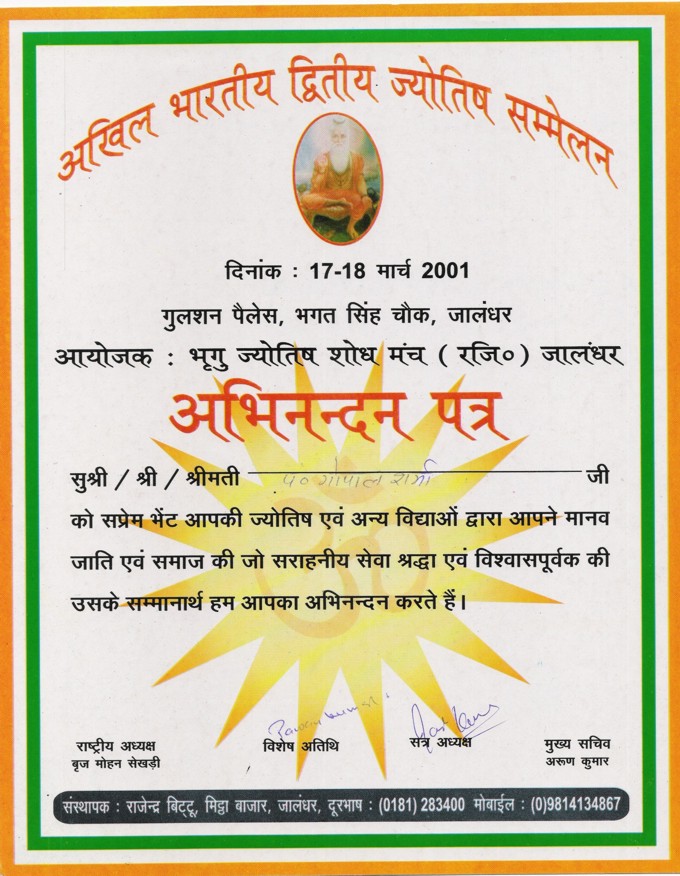 अखिल भारतीय द्वितीय ज्योतिष सम्मेलन
दिनांक : 17-18 मार्च 2001
गुलशन पैलेस, भगत सिंह चौक, जालंधर
आयोजक : भृगु ज्योतिष शोध मंच ( रजि० ) जालंधर
अभिनन्दन पत्र
सुश्री / श्री / श्रीमती पं० गोपाल शर्मा जी
को सप्रेम भेंट आपकी ज्योतिष एवं अन्य विद्याओं द्वारा आपने मानव
जाति एवं समाज की जो सराहनीय सेवा श्रद्धा एवं विश्वासपूर्वक की
उसके सम्मानार्थ हम आपका अभिनन्दन करते हैं।
राष्ट्रीय अध्यक्ष विशेष अतिथि सत्र अध्यक्ष मुख्य सचिव
बृज मोहन सेखड़ी अरूण कुमार
संस्थापक : राजेन्द्र बिट्टू, मिट्ठा बाजार, जालंधर, दूरभाष : (0181) 283400 मोबाईल : (0)9814134867